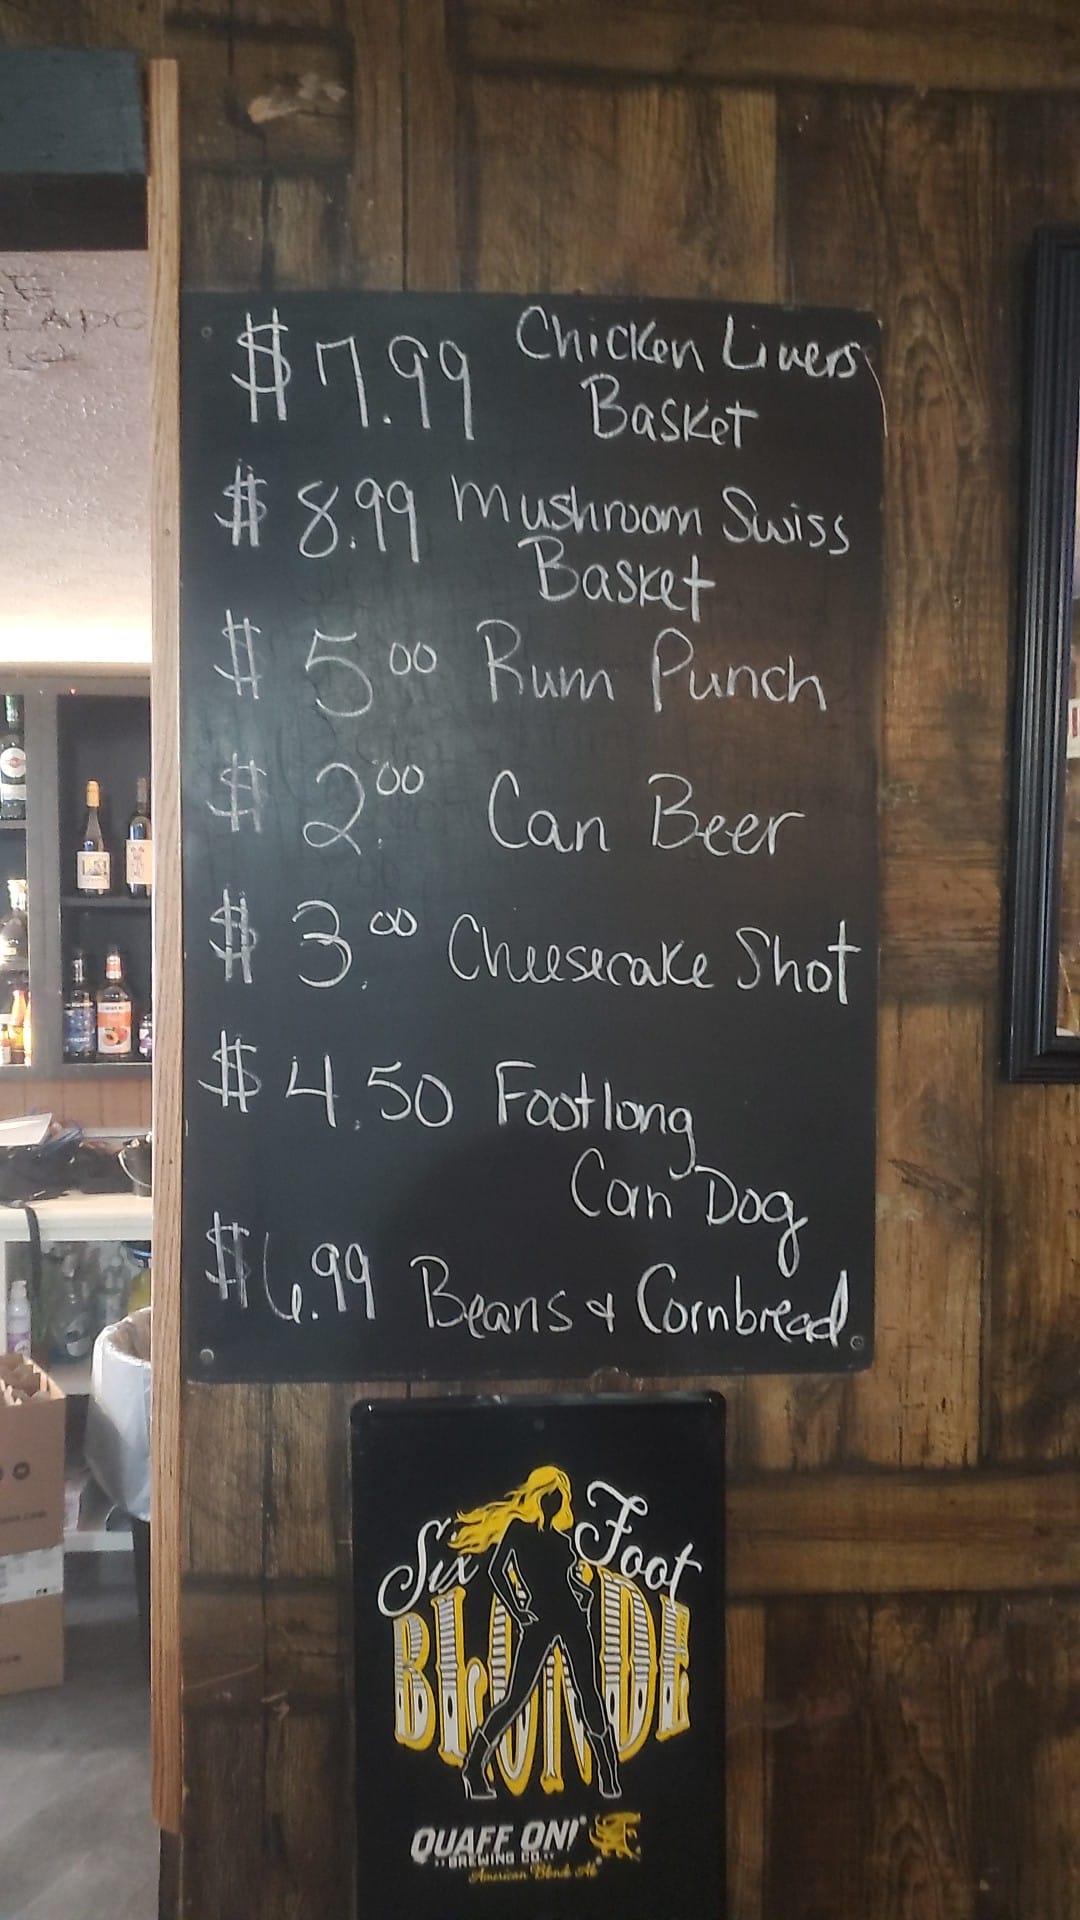 $7.99 Chicken Livers
Basket
$8.99 Mushroom Swiss
Basket
$5.00 Rum Punch
$2.00 Can Beer
$3.00 Cheesecake Shot
$4.50 Footlong
Corn Dog
$6.99 Beans & Cornbread
Six Foot
BLONDE
QUAFF ON!
BREWING CO.
American Blonde Ale